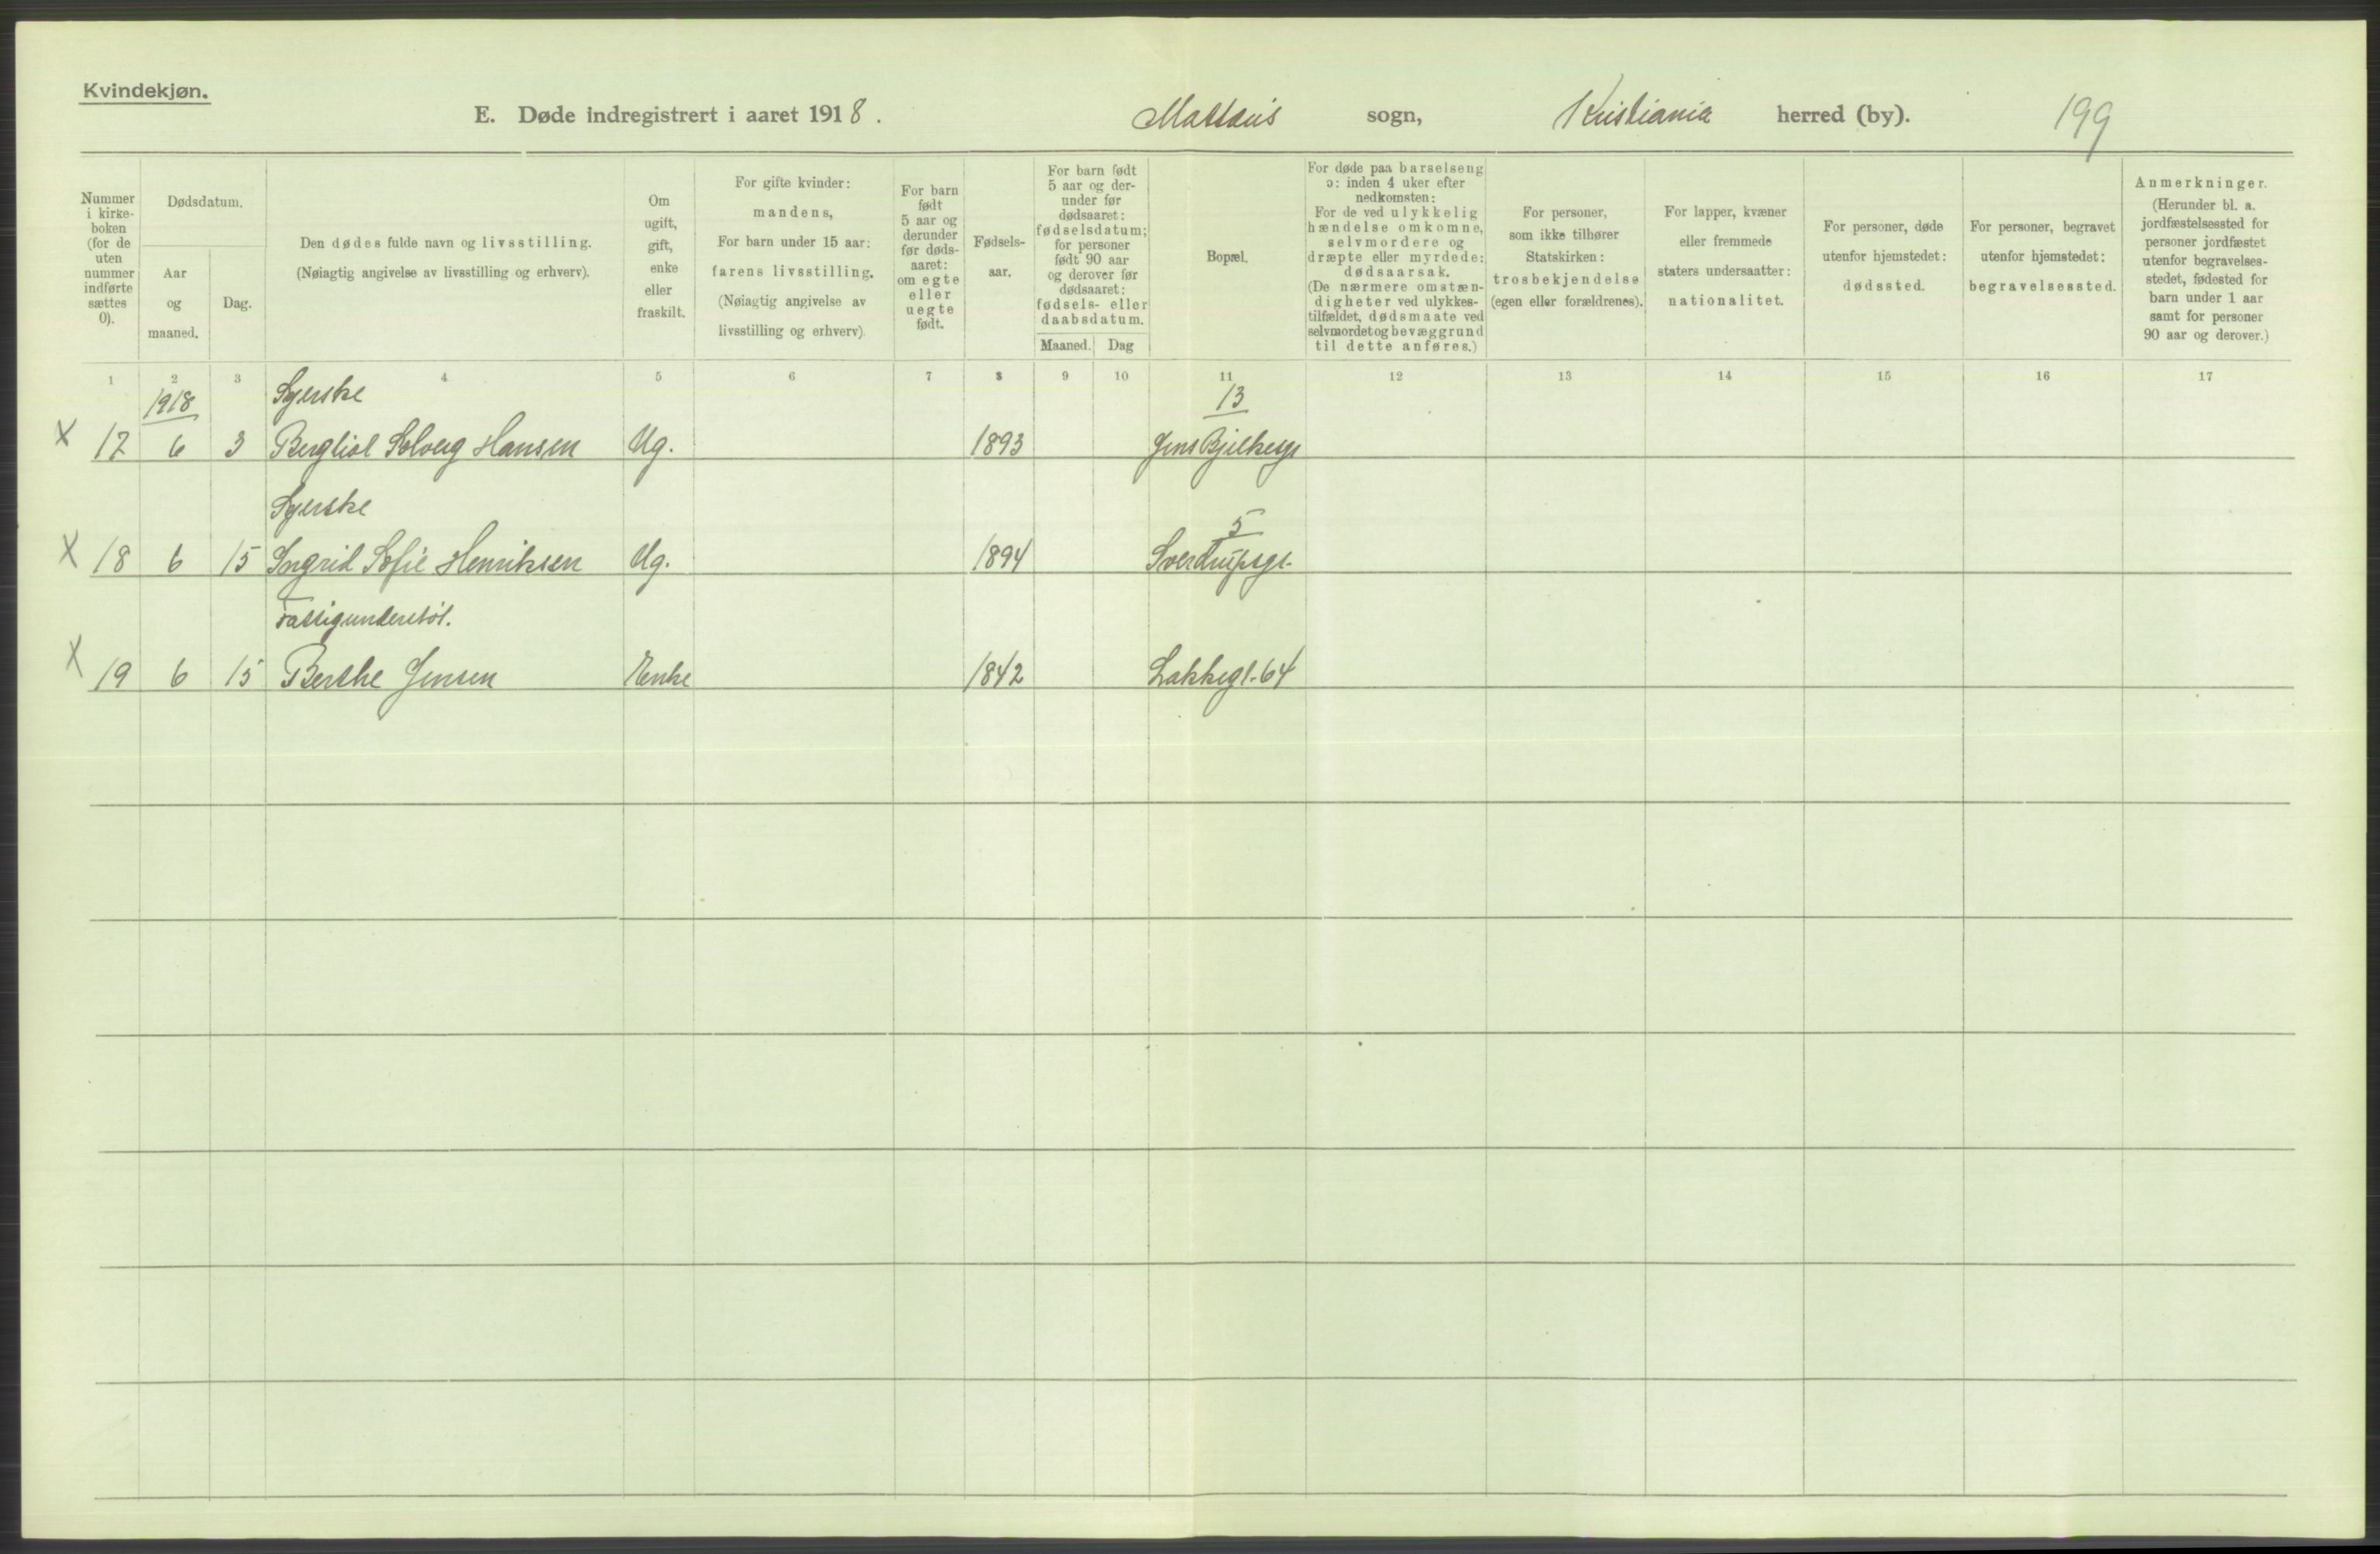 Kvindekjøn.
E. Døde indregistrert i aaret 1918. Mattæus sogn, Kristiania herred (by). 199
Nummer i kirke- boken (for de uten nummer indførte sættes 0).
Dødsdatum.
Aar og maaned.
Dag.
Den dødes fulde navn og livsstilling.
(Nøiagtig angivelse av livsstilling og erhverv).
Om ugift, gift, enke eller fraskilt.
For gifte kvinder: mandens,
For barn under 15 aar: farens livsstilling.
(Nøiagtig angivelse av livsstilling og erhverv)
For barn født 5 aar og derunder før døds- aaret: om egte eller uegte født.
Fødsels- aar.
For barn født 5 aar og der- under før dødsaaret: fødselsdatum; for personer født 90 aar og derover før dødsaaret: fødsels- eller daabsdatum.
Maaned. Dag
Bopæl.
For døde paa barselseng ɔ: inden 4 uker efter nedkomsten:
For de ved ulykkelig hændelse omkomne, selvmordere og dræpte eller myrdede: dødsaarsak.
(De nærmere omstæn- digheter ved ulykkes- tilfældet, dødsmaate ved selvmordet og bevæggrund til dette anføres.)
For personer, som ikke tilhører Statskirken: trosbekjendelse (egen eller forældrenes).
For lapper, kvæner eller fremmede staters undersaatter: nationalitet.
For personer, døde utenfor hjemstedet: dødssted.
For personer, begravet utenfor hjemstedet: begravelsessted.
Anmerkninger.
(Herunder bl. a. jordfæstelsessted for personer jordfæstet utenfor begravelses- stedet, fødested for barn under 1 aar samt for personer 90 aar og derover.)
1 2 3 4 5 6 7 8 9 10 11 12 13 14 15 16 17
1918 Syerske 13
x 17 6 3 Bergliot Solveig Hansen Ug. 1893 Jens Bjelkesgt
Syerske 5
x 18 6 15 Ingrid Sofie Henriksen Ug. 1894 Sverdrupsgt.
Fattigunderstøt.
x 19 6 15 Berthe Jensen Enke 1842 Lakkegt. 64